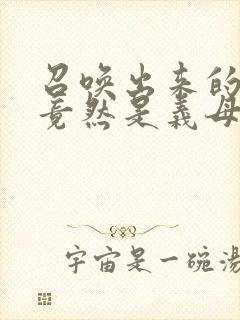 召唤出来的
竟然是義母
宇宙是一碗湯